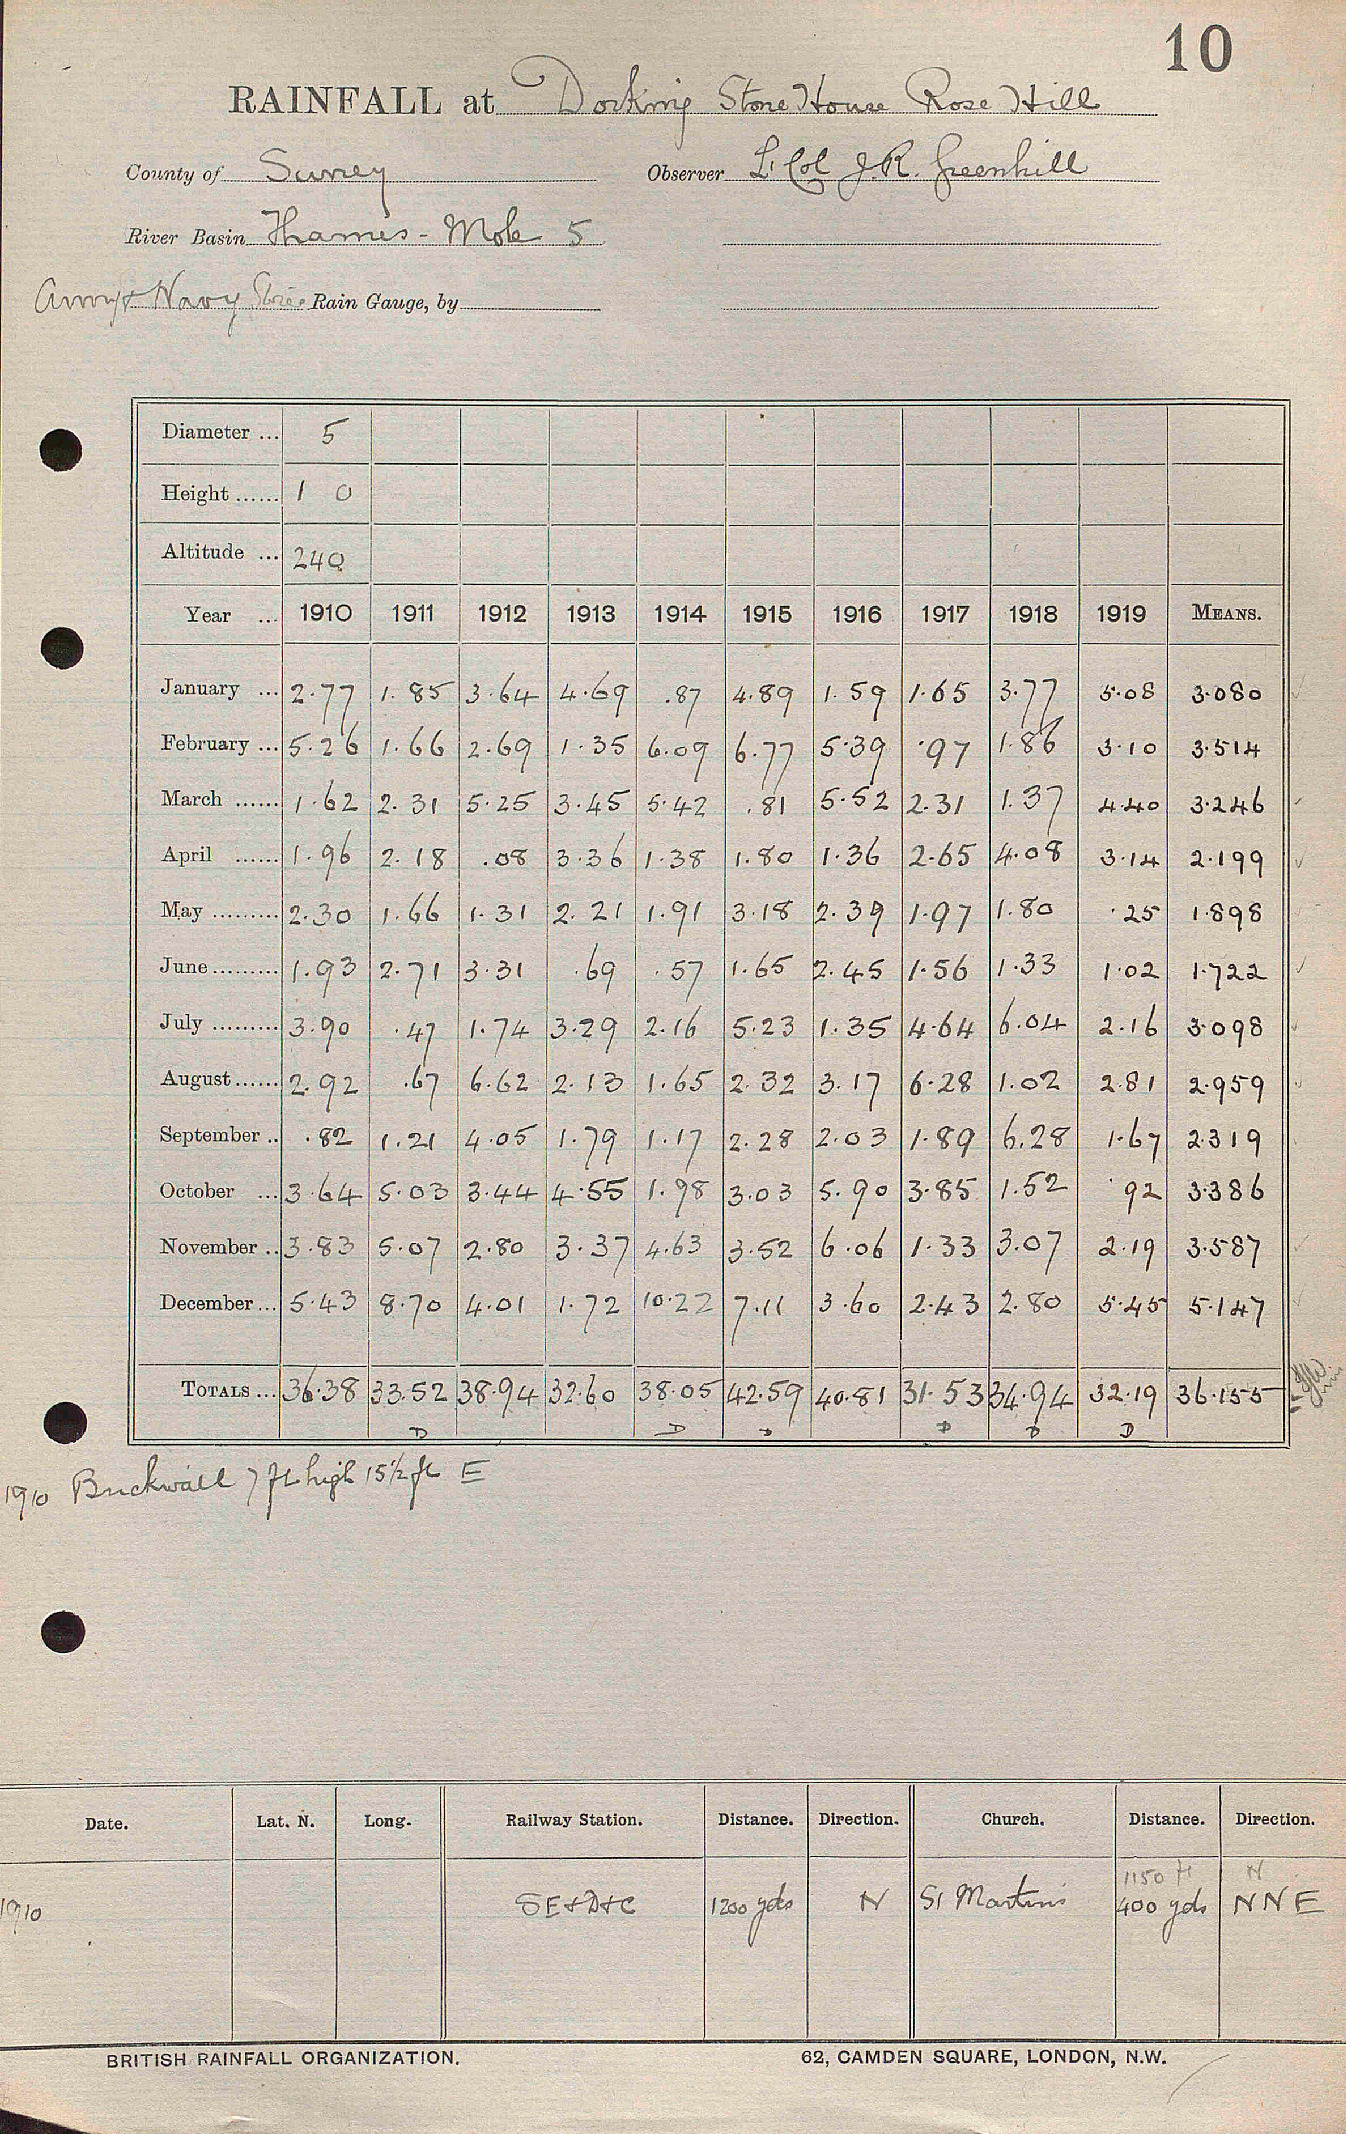 10
RAINFALL at Dorking Stone House Rose Hill
County of Surrey Observer Lt Col J.R. Greenhill
River Basin Thames - Mole 5
Army & Navy Stores Rain Gauge, by
Diameter ... 5
Height ...... 1 0
Altitude ... 240
Year ... 1910 1911 1912 1913 1914 1915 1916 1917 1918 1919 MEANS.
January ... 2.77 1.85 3.64 4.69 .87 4.89 1.59 1.65 3.77 5.08 3.080
February ... 5.26 1.66 2.69 1.35 6.09 6.77 5.39 .97 1.86 3.10 3.514
March ...... 1.62 2.31 5.25 3.45 5.42 .81 5.52 2.31 1.37 4.40 3.246
April ...... 1.96 2.18 .08 3.36 1.38 1.80 1.36 2.65 4.08 3.14 2.199
May ......... 2.30 1.66 1.31 2.21 1.91 3.18 2.39 1.97 1.80 .25 1.898
June ......... 1.93 2.71 3.31 .69 .57 1.65 2.45 1.56 1.33 1.02 1.722
July ......... 3.90 .47 1.74 3.29 2.16 5.23 1.35 4.64 6.04 2.16 3.098
August ...... 2.92 .67 6.62 2.13 1.65 2.32 3.17 6.28 1.02 2.81 2.959
September .. .82 1.21 4.05 1.79 1.17 2.28 2.03 1.89 6.28 1.67 2.319
October ... 3.64 5.03 3.44 4.55 1.98 3.03 5.90 3.85 1.52 .92 3.386
November .. 3.83 5.07 2.80 3.37 4.63 3.52 6.06 1.33 3.07 2.19 3.587
December ... 5.43 8.70 4.01 1.72 10.22 7.11 3.60 2.43 2.80 5.45 5.147
TOTALS ... 36.38 33.52 38.94 32.60 38.05 42.59 40.81 31.53 34.94 32.19 36.155
D D D D D D
1910 Brickwall 7 ft high 15½ ft E
Date. Lat. N. Long. Railway Station. Distance. Direction. Church. Distance. Direction.
1150 ft N
1910 SE & D & C 1200 yds N St Martins 400 yds NNE
BRITISH RAINFALL ORGANIZATION. 62, CAMDEN SQUARE, LONDON, N.W.